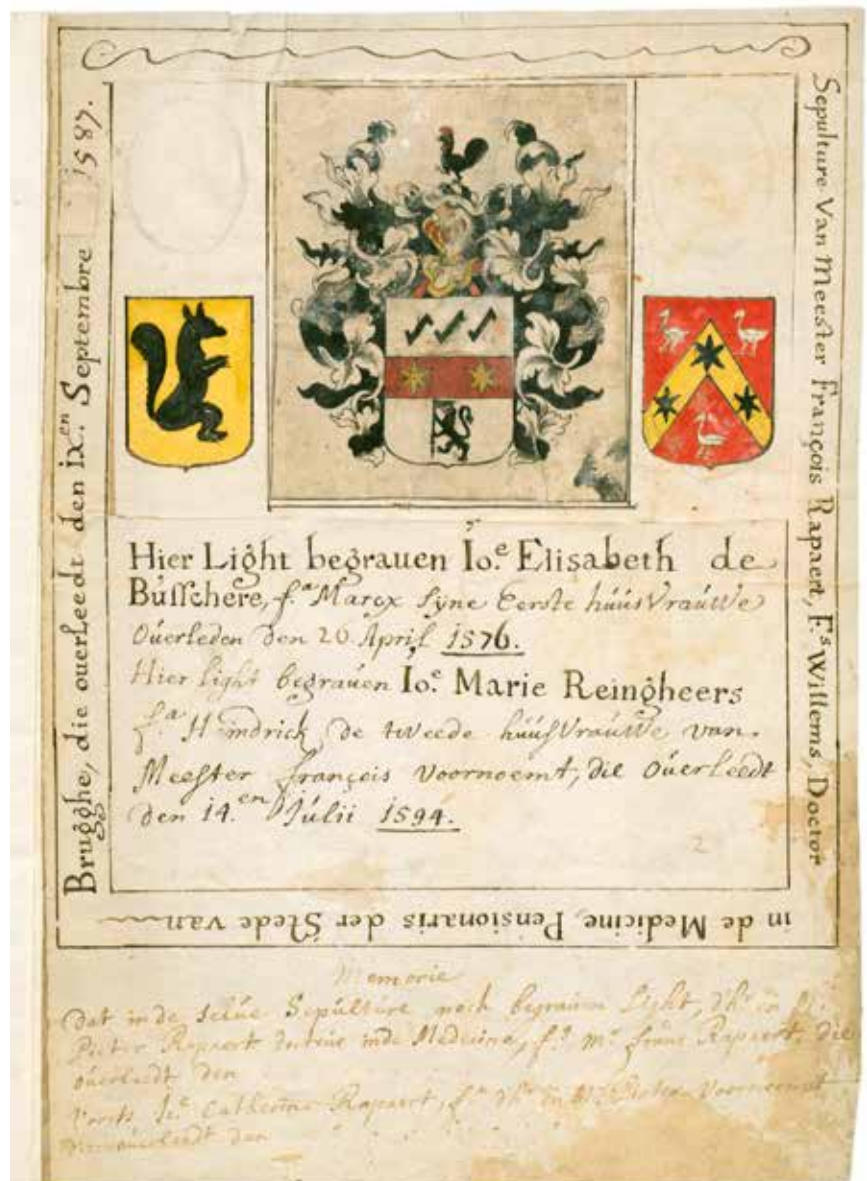 Sepulture Van Meester François Rapaert, F.s Willems, Doctor
in de Medicine, Pensionaris der Stede van
Brugghe, die ouerleedt den ix.en Septembre 1587.
Hier Light begrauen Io.e Elisabeth de
Busschere, f.a Marcx syne Eerste huusvrauwe
Ouerleden den 20 April 1576.
Hier light begrauen Io.e Marie Reingheers
f.a Heindrick de tweede huusvrauwe van
Meester françois voornoemt, die ouerleedt
den 14.en Julii 1594.
2
Memorie
Dat in de selue Sepulture noch begrauen Light, d'hr. en
Pieter Rapaert inde Medecine, f.s Mr. frans Rapaert, die
ouerleedt den
Io.e Catherine Rapaert, f.a d'hr. en Mr. Pieter Voornoempt
ouerleedt den